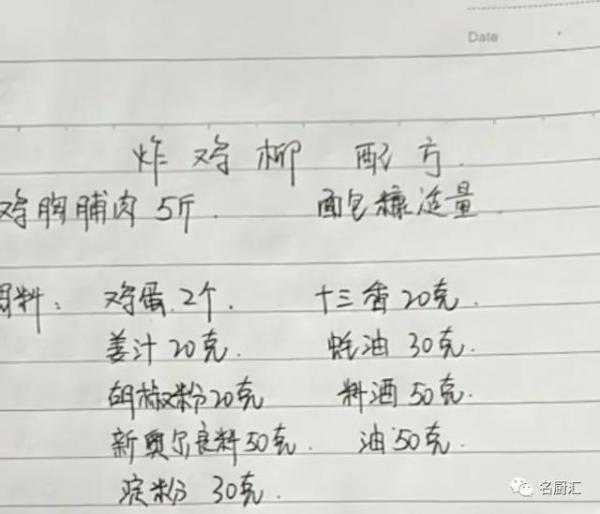 Date
炸鸡柳 配方.
鸡胸脯肉 5斤. 面包糠适量.
料: 鸡蛋 2个. 十三香 20克.
姜汁 20克. 蚝油 30克.
胡椒粉 20克 料酒 50克.
新奥尔良料 50克. 油 50克.
淀粉 30克.
名厨汇